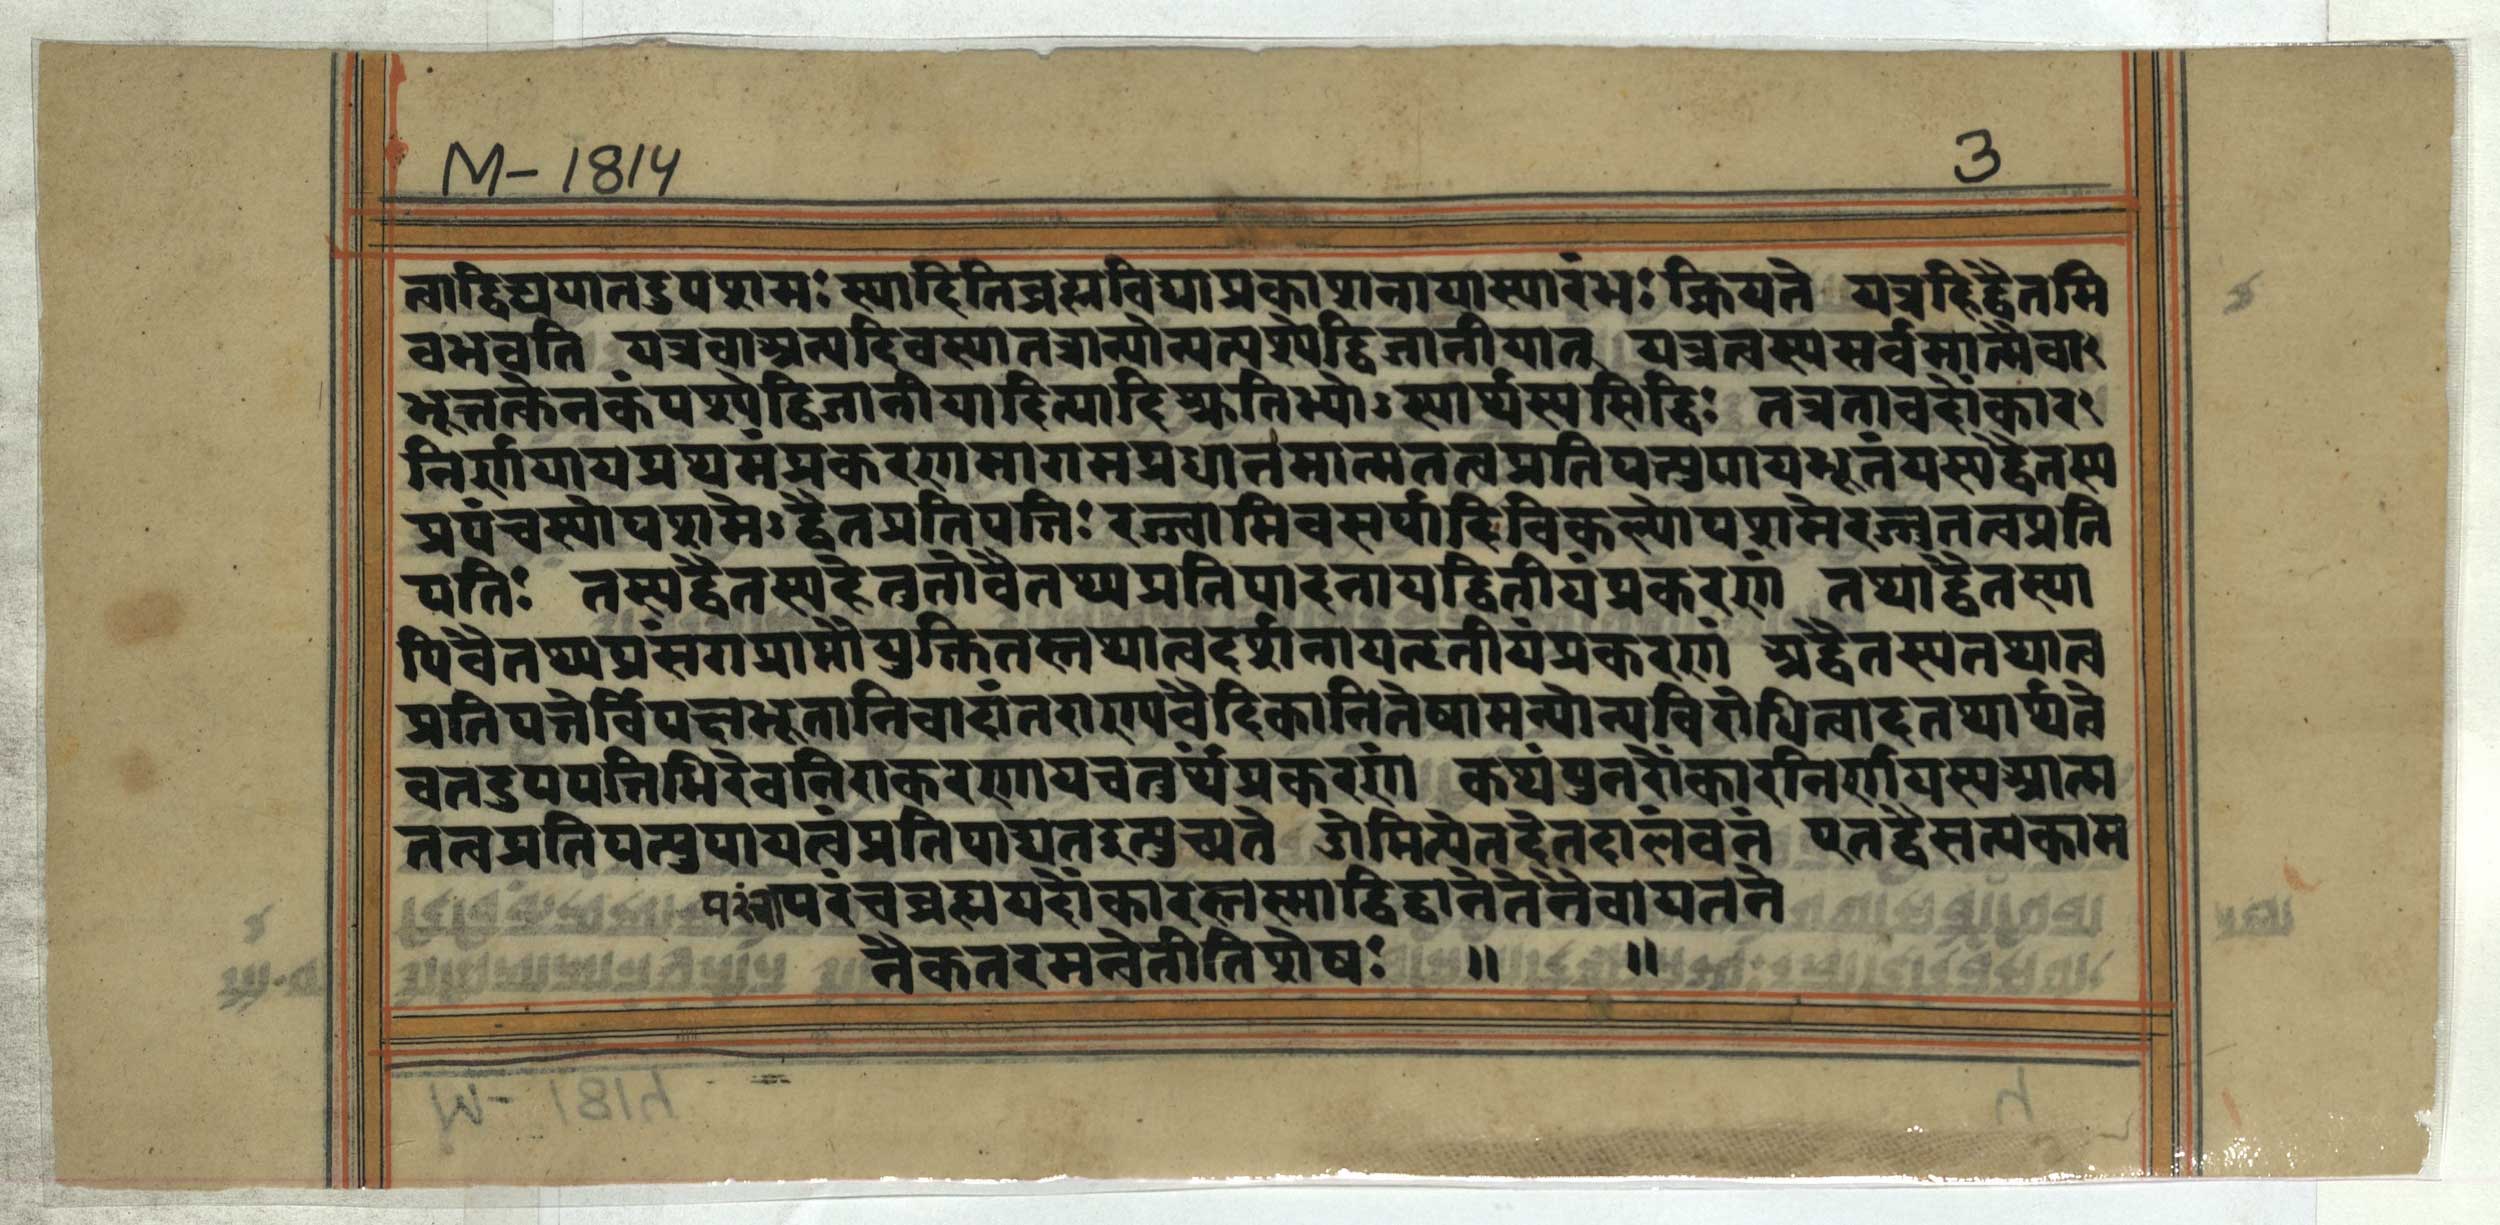 M-1814
3
त्वाद्विद्ययातदुपशमः स्यादितिब्रह्मविद्याप्रकाशनायास्यारंभः क्रियते यत्रहिद्वैतमि
वभवति यत्रवाअन्यदिवस्यातत्रान्योन्यत्पश्येद्विजानीयात् यत्रत्वस्यसर्वमात्मैवा
भूत्तत्केनकंपश्येद्विजानीयादित्यादिश्रुतिभ्योऽस्यार्थस्यसिद्धिः तत्रतावदोंकार
निर्णयायप्रथमंप्रकरणमागमप्रधानमात्मतत्वप्रतिपत्युपायभूतंयस्यद्वैतस्य
प्रपंचस्योपशमेऽद्वैतप्रतिपत्तिः रज्ज्वामिवसर्पादिविकल्पोपशमेरज्जुतत्वप्रति
पतिः तस्यद्वैतस्यहेतुतोवैतथ्यप्रतिपादनायद्वितीयंप्रकरणं तथाद्वैतस्या
पिवैतथ्यप्रसंगप्राप्तौयुक्तितस्तथात्वदर्शनायतृतीयंप्रकरणं अद्वैतस्यतथात्व
प्रतिपत्तेर्विपक्षभूतानिवादांतराण्यवैदिकानितेषामन्योन्यविरोधित्वादतथार्थत्वे
वतदुपपत्तिभिरेवनिराकरणायचतुर्थंप्रकरणं कथंपुनरोंकारनिर्णयस्यआत्म
तत्वप्रतिपत्युपायत्वंप्रतिपाद्यतइत्युच्यते ओमित्येतदेतदालंवनं एतद्वैसत्यकाम
परंचापरंचब्रह्मयदोंकारस्तस्माद्विद्वानेतेनैवायतने
नैकतरमन्वेतीतिशेषः ॥ ॥